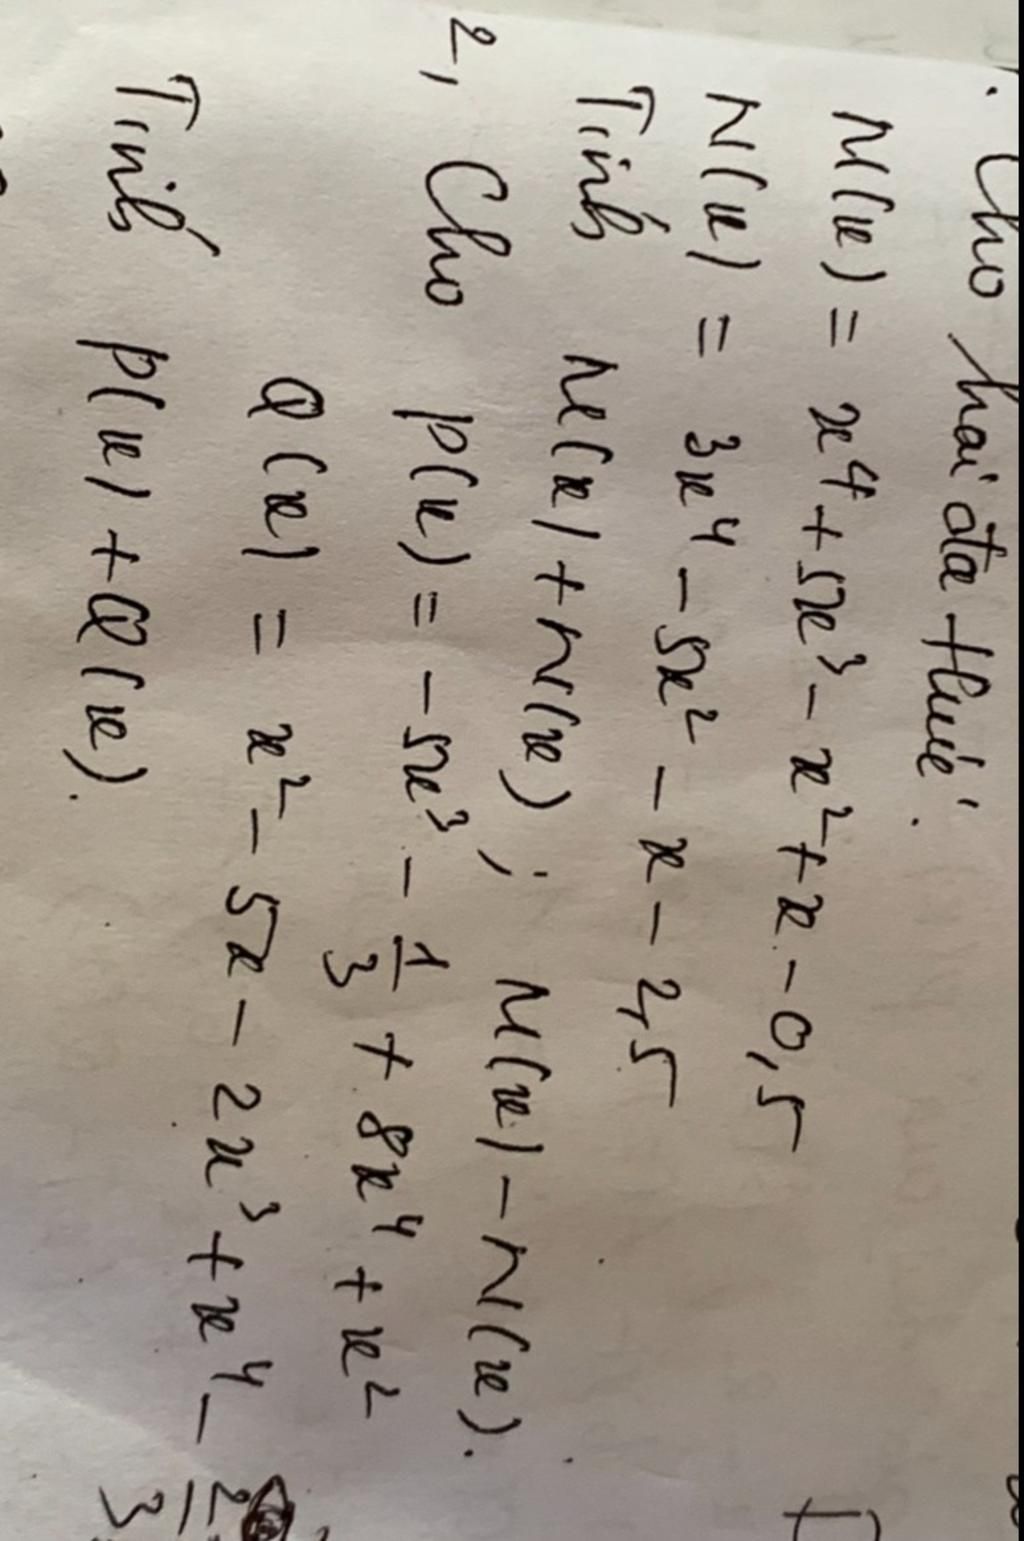 . Cho hai đa thức.
M(x) = x⁴ + 5x³ - x² + x - 0,5
N(x) = 3x⁴ - 5x² - x - 2,5
Tính M(x) + N(x) ; M(x) - N(x).
2, Cho P(x) = - 5x³ - 1/3 + 8x⁴ + x²
Q(x) = x² - 5x - 2x³ + x⁴ - 2/3
Tính P(x) + Q(x).